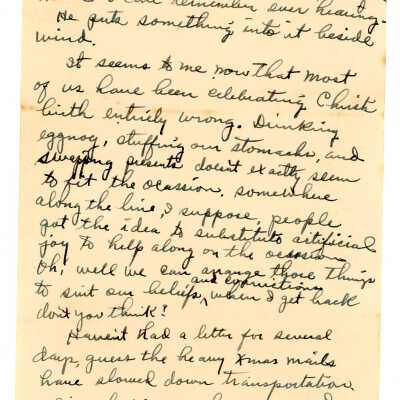 I can remember ever hearing.
He puts something into it beside
wind.
It seems to me now that most
of us have been celebrating Christ
birth entirely wrong. Drinking
eggnog, stuffing our stomachs, and
swapping presents doesn't exactly seem
to fit the ocassion. somewhere
along the line, I suppose, people
got the idea to substitute artificial
joy to help along on the ocassion
Oh, well we can arrange those things
to suit our beliefs and convictions, when I get back
don't you think?
Haven't had a letter for several
days, guess the heavy Xmas mails
have slowed down transportation.